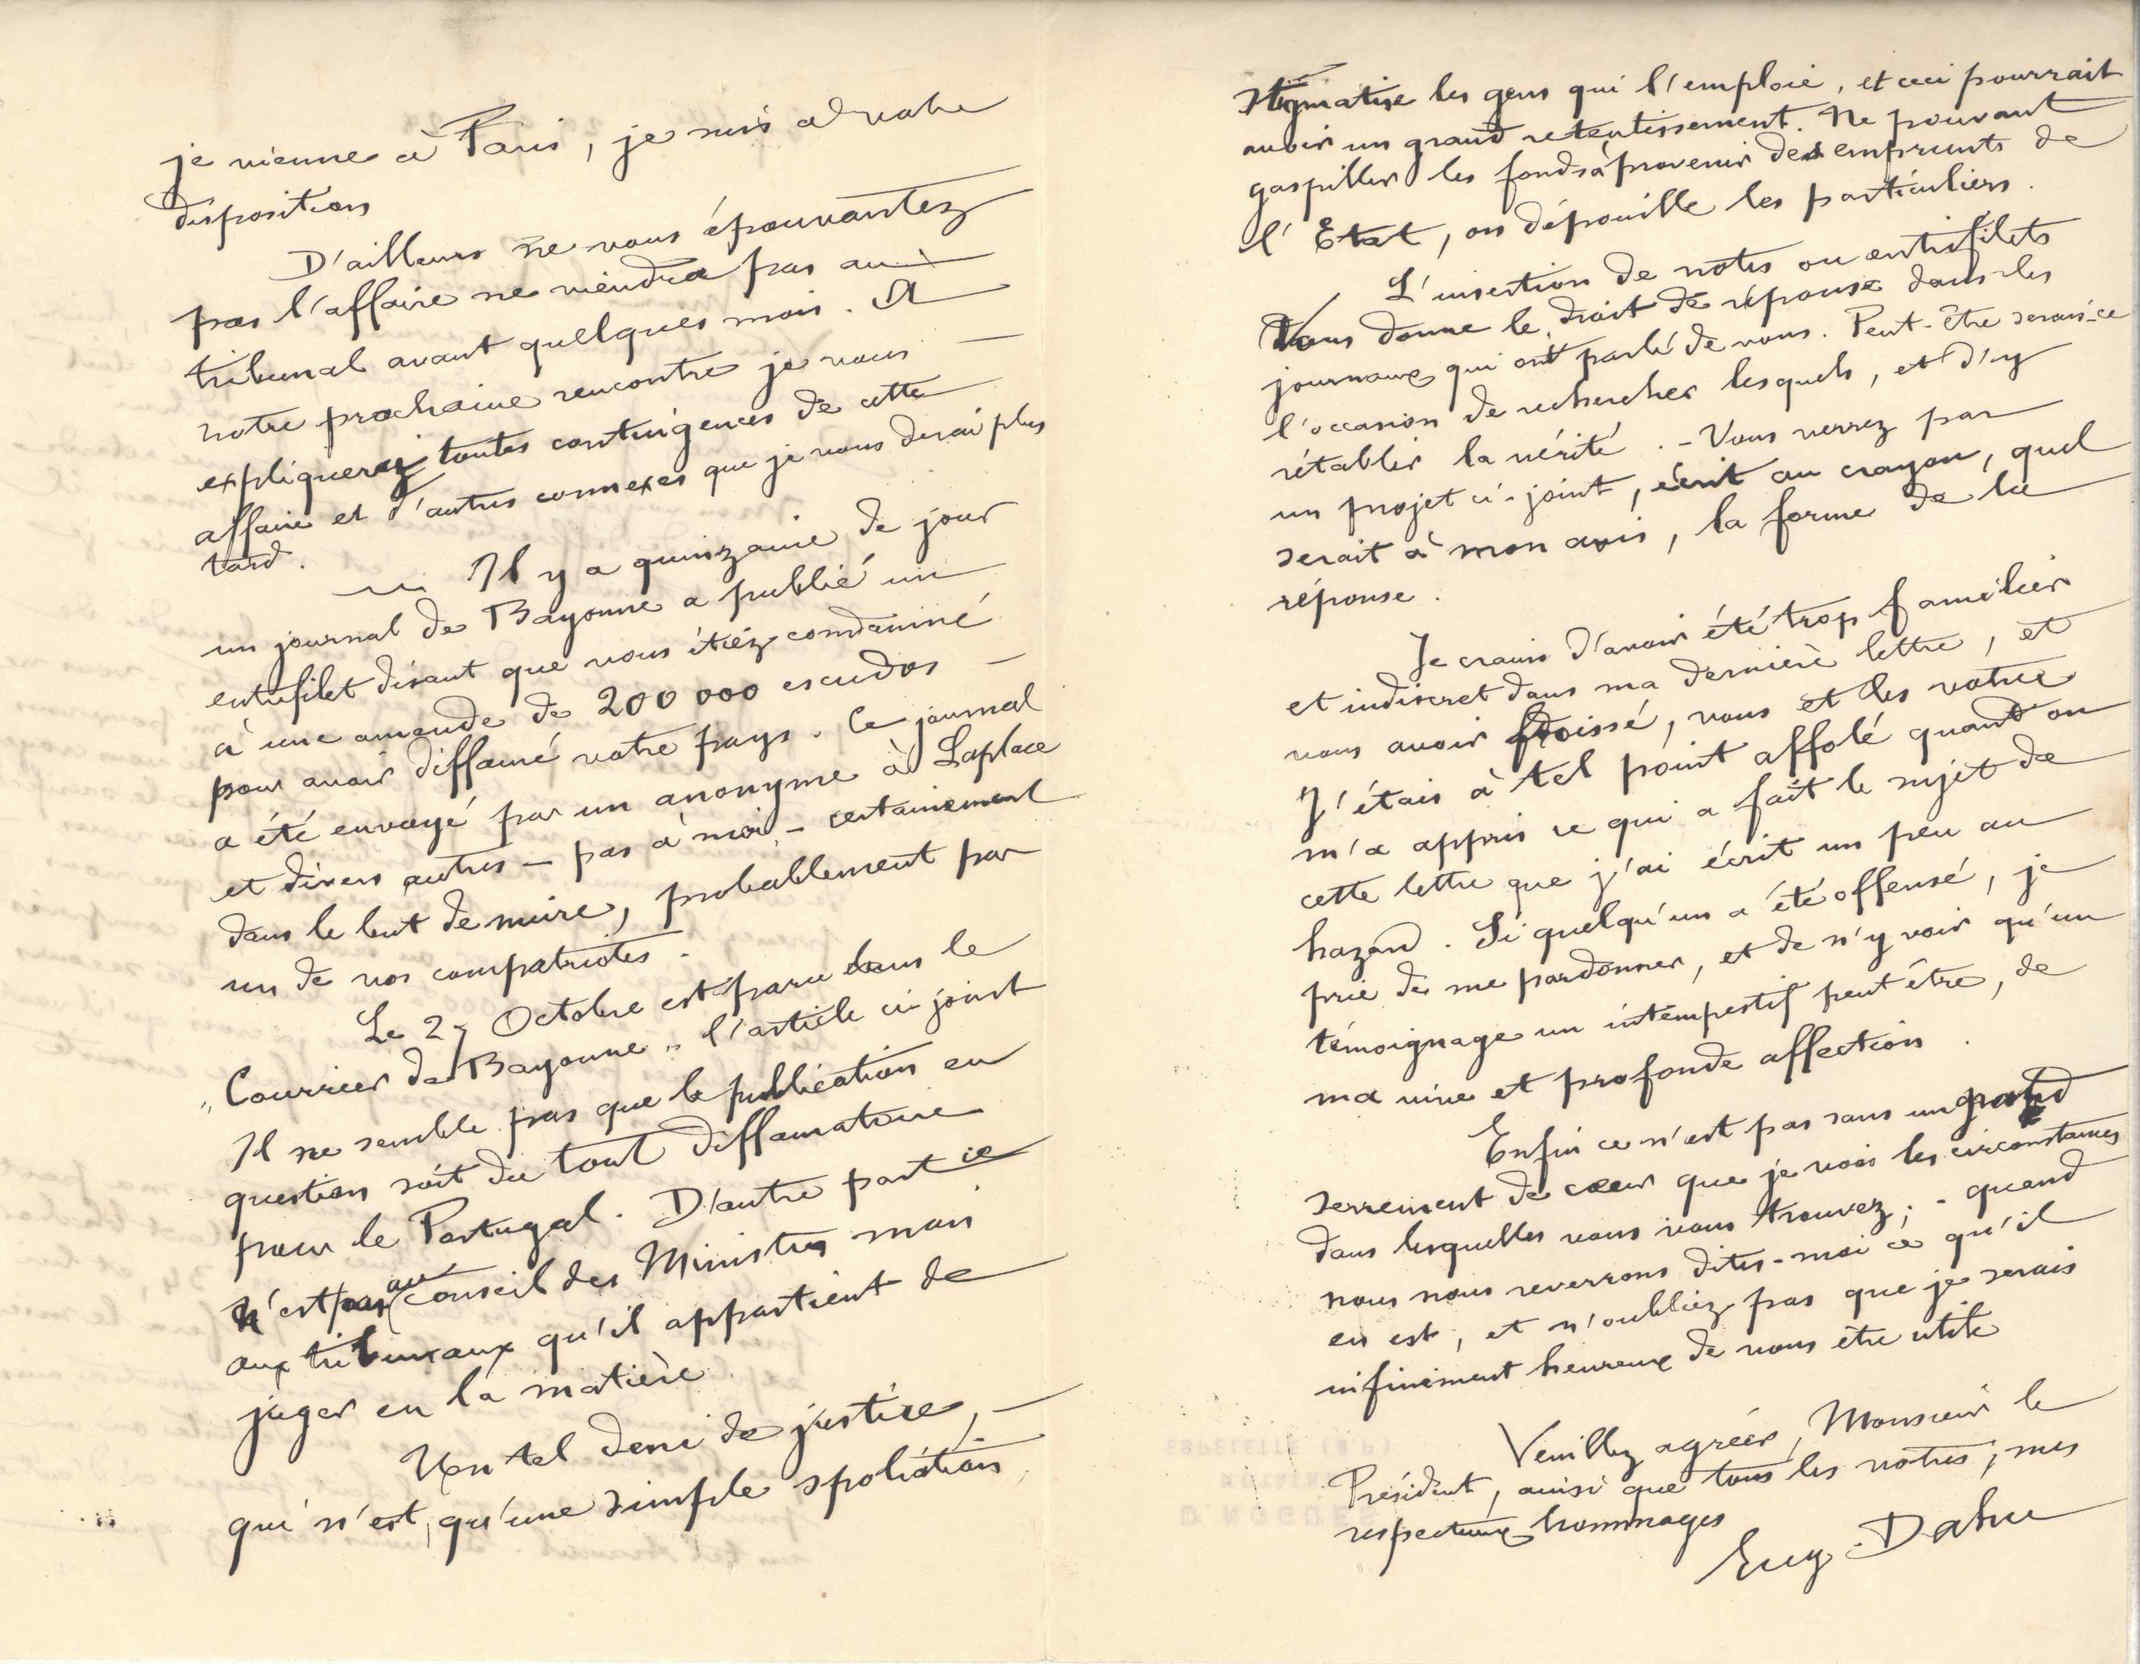 je vienne à Paris, je suis a votre
disposition
D'ailleurs ne vous épouvantez
pas l'affaire ne viendra pas au
tribunal avant quelques mois. A
notre prochaine rencontre je vous
expliquerai toutes contingences de cette
affaire et d'autres connexes que je vous dirai plus
tard.
Il y a quinzaine de jour
un journal de Bayonne a publié un
entrefilet disant que vous étiez condamné
à une amende de 200 000 escudos
pour avoir diffamé votre pays. Ce journal
a été envoyé par un anonyme à Laplace
et divers autres – pas à moi – certainement
dans le but de nuire, probablement par
un de vos compatriotes.
Le 27 Octobre est paru dans le
"Courrier de Bayonne" l'article ci joint
Il ne semble pas que la publication en
question soit du tout diffamatoire
pour le Portugal. D'autre part ce
n'est pas au conseil des Ministres mais
aux tribunaux qu'il appartient de
juger en la matière.
Un tel deni de justice,
qui n'est, qu'une simple spoliation,
stigmatise les gens qui l'emploie, et ceci pourrait
avoir un grand retentissement. Ne pouvant
gaspiller les fonds à provenir des emprunts de
l'Etat, on dépouille les particuliers.
L'insertion de notes ou entrefilets
Vous donne le droit de réponse dans les
journaux qui ont parlé de vous. Peut-être serais-ce
l'occasion de rechercher lesquels, et d'y
rétablir la vérité. – Vous verrez par
un projet ci-joint, écrit au crayon, quel
serait à mon avis, la forme de la
réponse.
Je crains d'avoir été trop familier
et indiscret dans ma dernière lettre, et
vous avoir froissé, vous et les votres
J'étais à tel point affolé quand on
m'a appris ce qui a fait le sujet de
cette lettre que j'ai écrit un peu au
hazard. Si quelqu'un a été offensé, je
prie de me pardonner, et de n'y voir qu'un
témoignage un intempestif peut être, de
ma vive et profonde affection.
Enfin ce n'est pas sans un grand
serrement de cœur que je vois les circonstances
dans lesquelles vous vous trouvez; - quand
nous nous reverrons dites-moi ce qu'il
en est, et n'oubliez pas que je serais
infiniment heureux de vous être utile
Veuillez agréer, Monsieur le
Président, ainsi que tous les votres, mes
respectueux hommages
Eug. Dahu